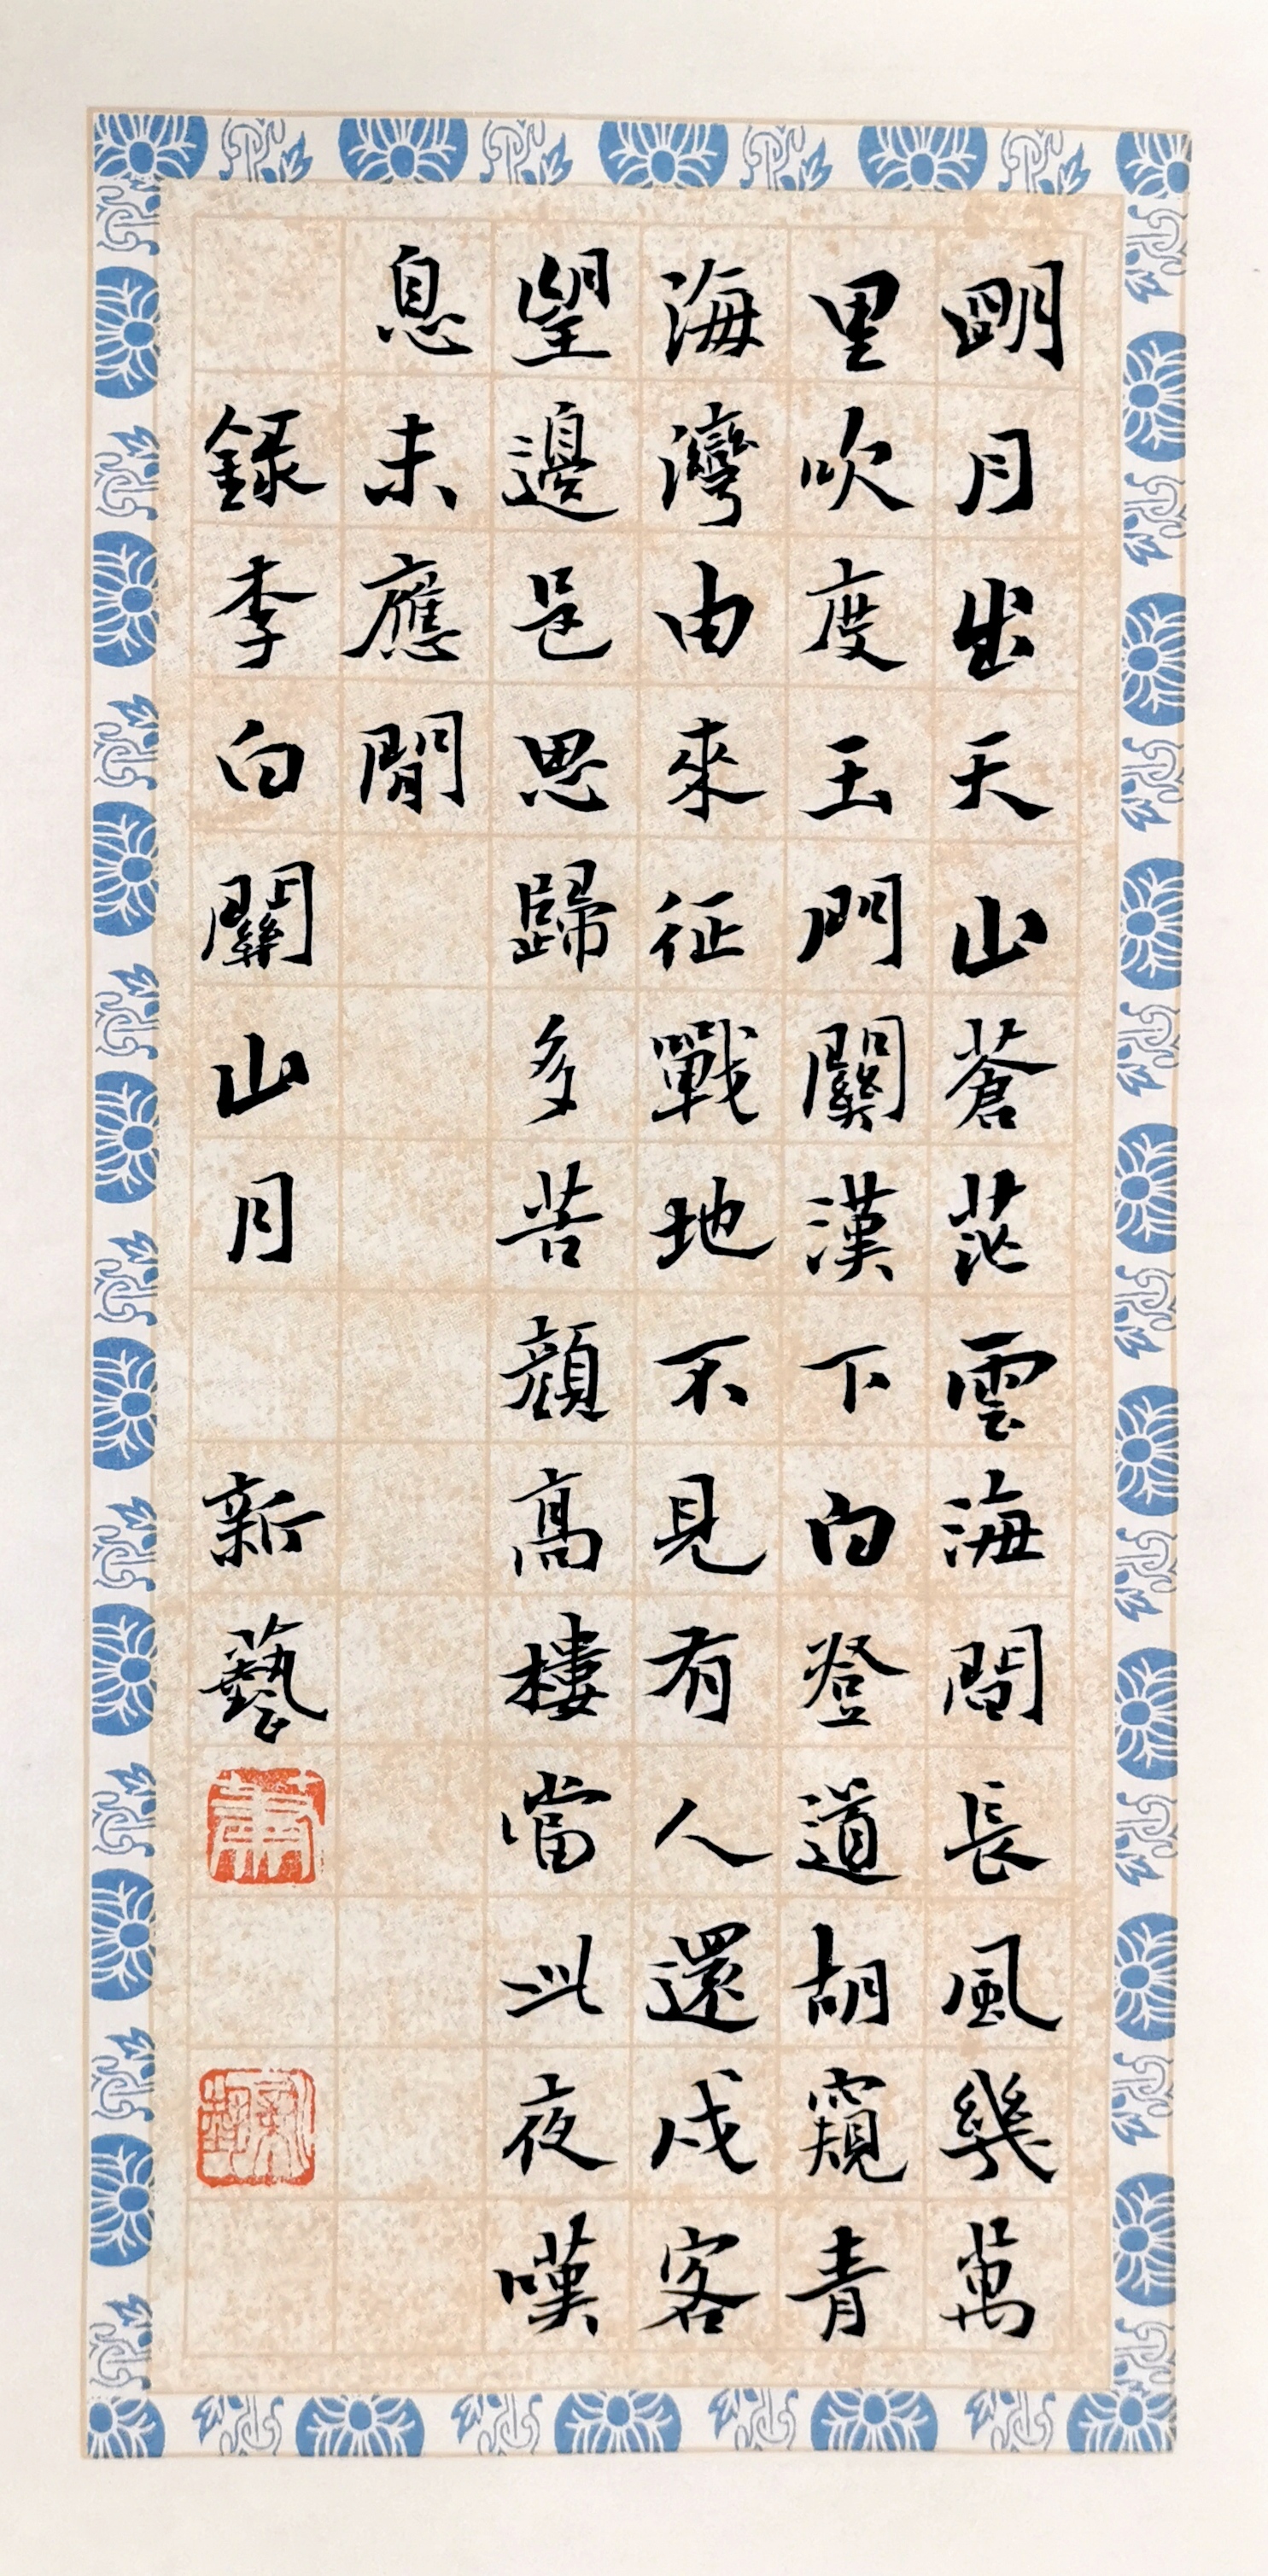 明月出天山蒼茫雲海間長風幾萬
里吹度玉門關漢下白登道胡窺青
海灣由來征戰地不見有人還戍客
望邊邑思歸多苦顏高樓當此夜嘆
息未應閒
錄李白關山月 新藝